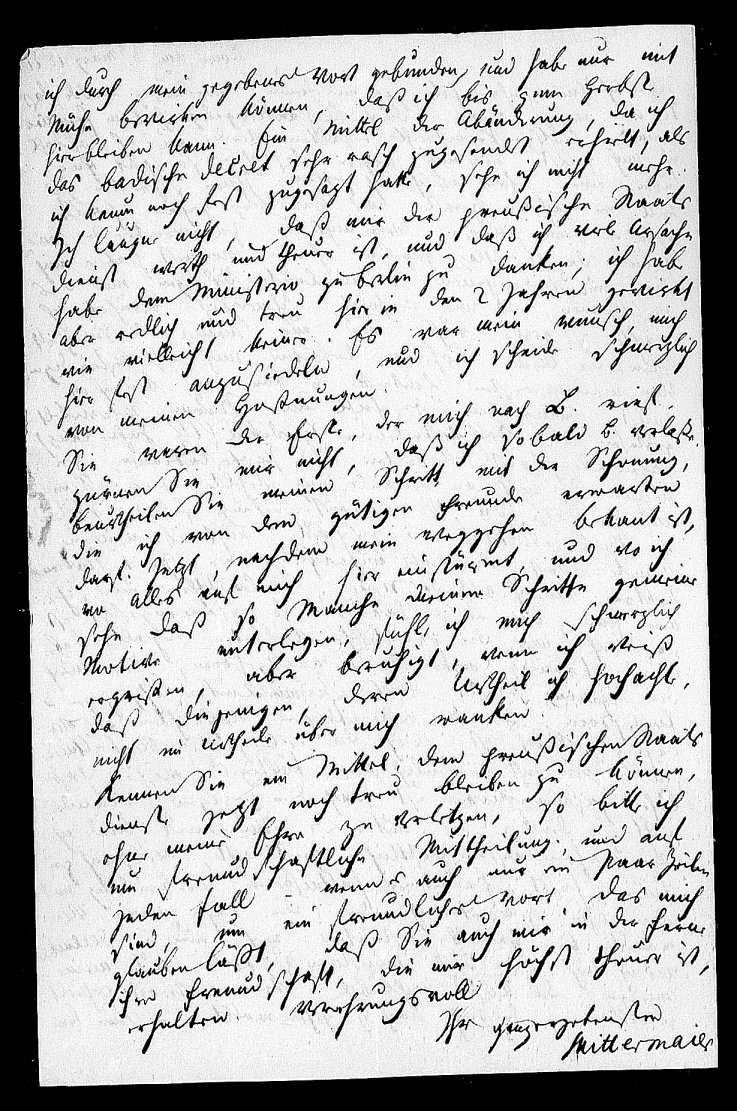 ich durch mein gegebenes Wort gebunden, und habe nur mit
Mühe bewirken können, daß ich bis zum Herbst
hier bleiben kann. Ein Mittel der Abänderung, da ich
das badische Decret sehr rasch zugesendet erhielt, als
ich kaum noch fest zugesagt hatte, sehe ich nicht mehr.
Ich läugne nicht, daß mir der preußische Staats
dienst werth und theuer ist, und daß ich viel Ursache
habe dem Ministerio zu Berlin zu danken; ich hab
aber redlich und treu hier in den 2 Jahren gewirkt
wie vielleicht keiner. Es war mein Wunsch, mich
hier fest anzusiedeln, und ich scheide schmerzlich
von meinen Hoffnungen.
Sie waren der Erste, der mich nach B. rief.
zürnen Sie mir nicht, daß ich sobald B. verlasse.
beurtheilen Sie meinen Schritt mit der Schonung,
die ich von dem gütigen Freunde erwarten
darf. Jetzt, nachdem mein Weggehen bekant ist,
wo Alles auf mich hier einstürmt, und wo ich
sehe daß so Manche meinem Schritte gemeine
Motive unterlegen, fühle ich mich schmerzlich
ergriffen, aber beruhigt, wenn ich weiß
daß diejenigen, deren Urtheil ich hochachte,
nicht im Urtheile über mich wanken.
Kennen Sie ein Mittel, dem preußischen Staats
dienste jetzt noch treu bleiben zu können,
ohne meine Ehre zu verletzen, so bitte ich
um freundschaftliche Mittheilung; und auf
jeden Fall wenn es auch nur ein Paar Zeilen
sind, um ein freundliches Wort das mich
glauben läßt, daß Sie auch mir in der Ferne
ihre Freundschaft, die mir höchst theuer ist,
erhalten. Verehrungsvoll
Ihr ganz ergebenster
Mittermaier